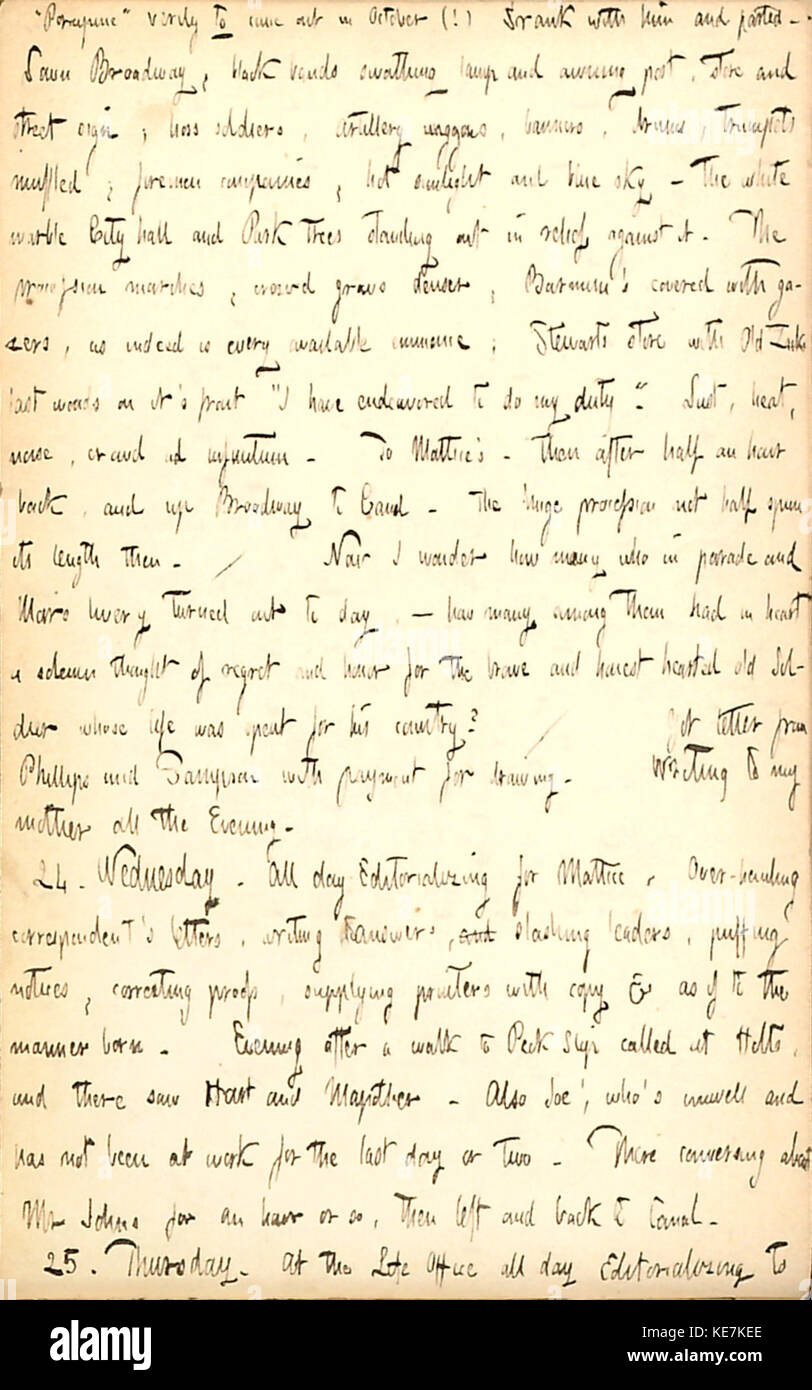 "Porcupine" verily to come out in October (!) Drank with him and parted. -
Down Broadway, black bands swathing lamp and awning post, store and
street sign; hoss soldiers, artillery waggons, banners, drums, trumpets
muffled; firemen companies, hot sunlight and blue sky - the white
marble City hall and Park trees standing out in relief against it. The
procession marches, crowd grows denser, Barnum's covered with ga-
zers, as indeed is every available eminence; Stewarts store with Old Zack
last words on it's front "I have endeavored to do my duty." Dust, heat,
noise, crowd ad infinitum - To Mattice's - then after half an hour
back, and up Broadway to Canal - The huge procession not half spun
its length then. - / Now I wonder how many who in parade and
Mars livery turned out to day, - how many among them had in heart
a solemn thought of regret and honor for the brave and honest hearted old Sol-
dier whose life was spent for his country? / Got letter from
Phillips and Sampson with payment for drawing - Writing to my
mother all the Evening -
24. Wednesday. All day Editorializing for Mattice, Over-hauling
correspondent's letters, writing answers, and slashing leaders, puffing
notices, correcting proofs, supplying printers with copy & as if to the
manner born - Evening after a walk to Peck Slip called at Holts,
and there saw Hart and Mapother - Also Joe, who's unwell and
has not been at work for the last day or two - There conversing about
Mr Johns for an hour or so, then left and back to Canal -
25. Thursday. At the Life Office all day Editorializing to
alamy
Image ID: KE7KEE
www.alamy.com